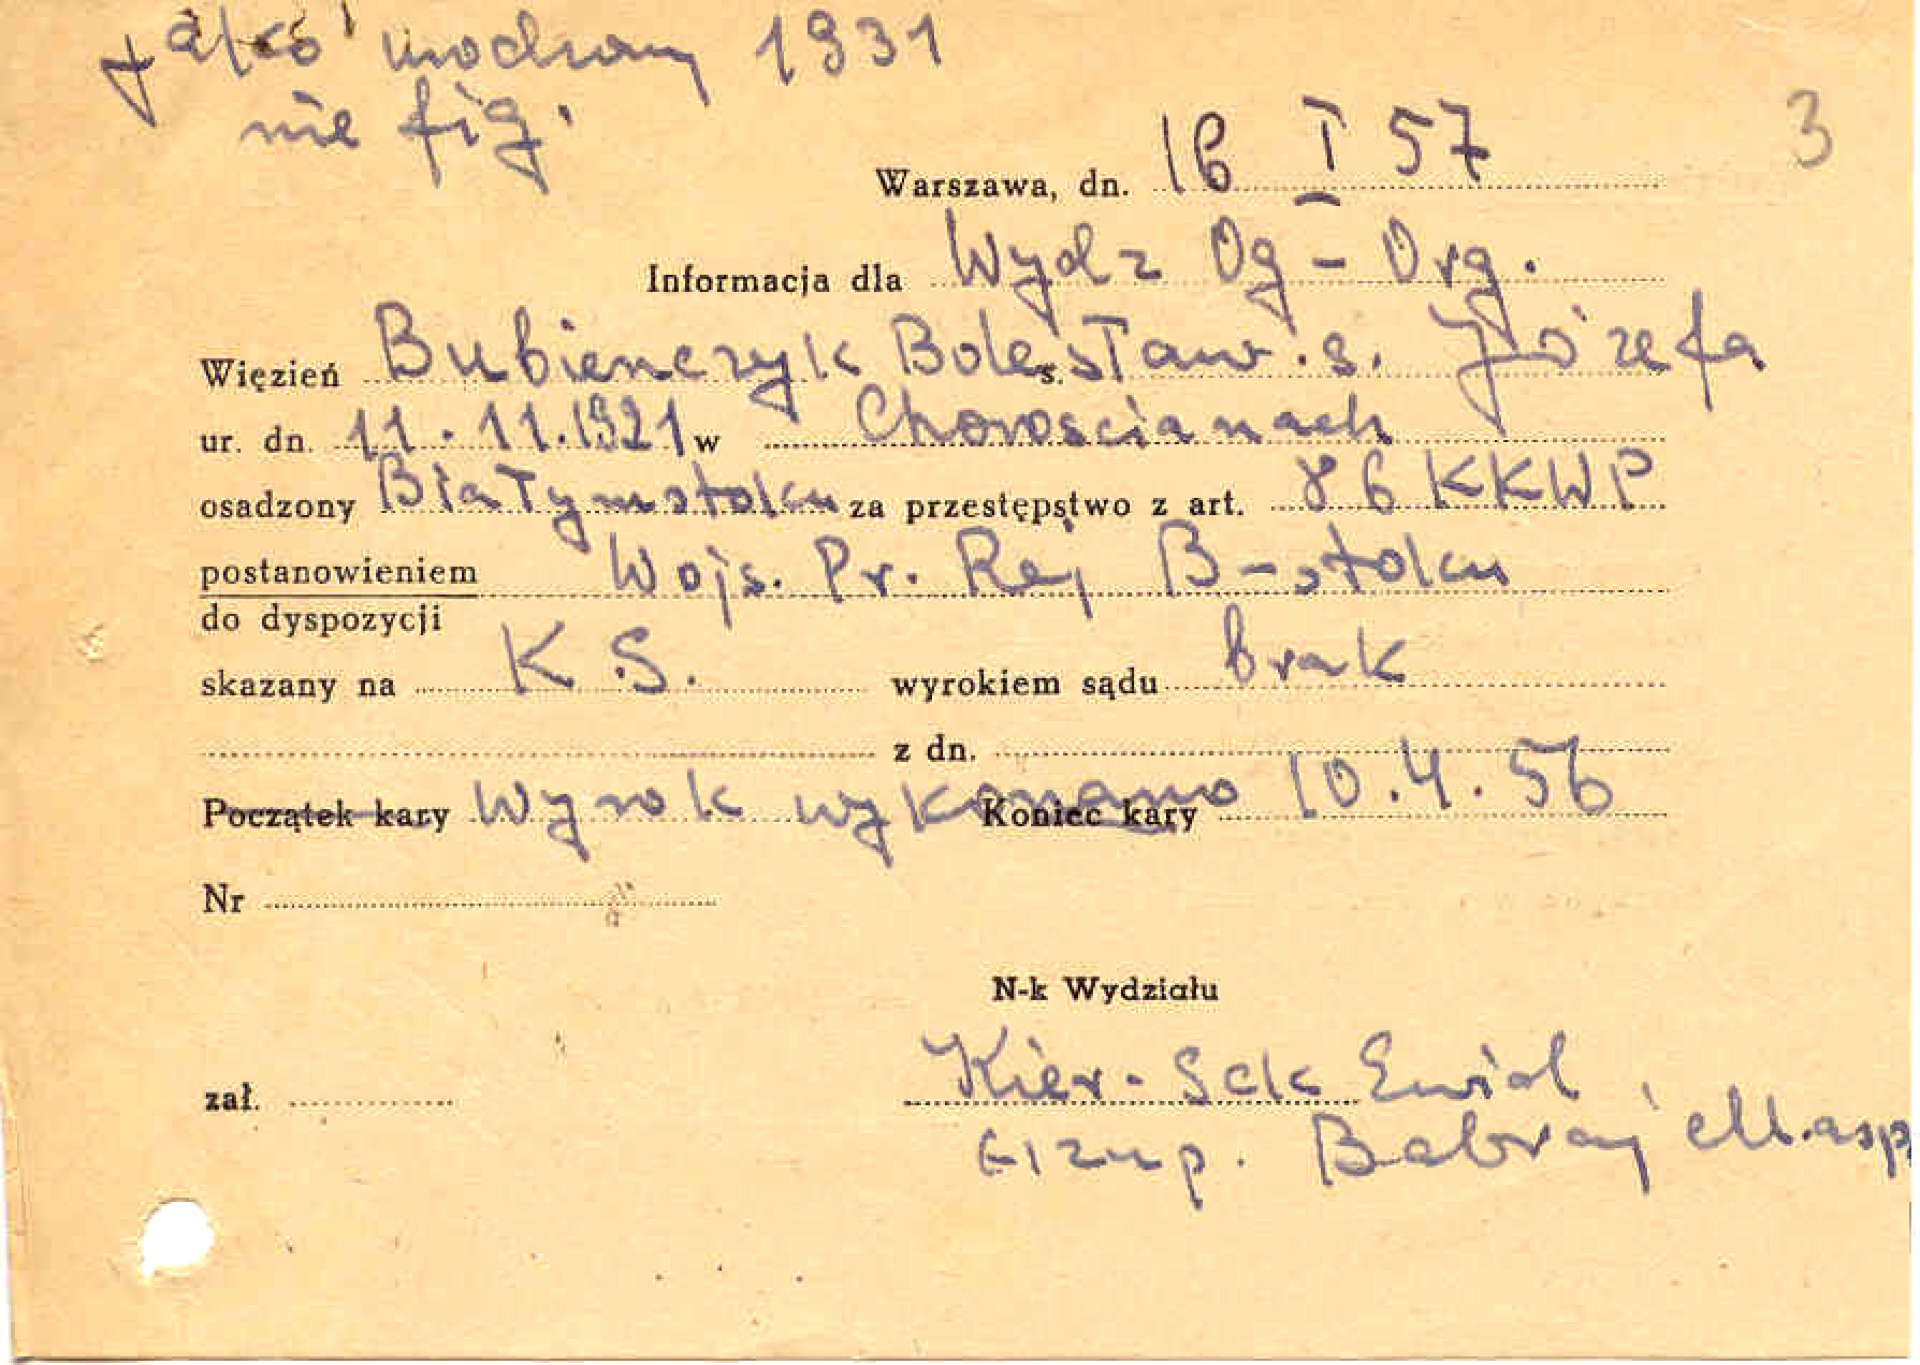 jako urodzony 1931
nie fig.
3
Warszawa, dn. 16 I 57
Informacja dla Wydz Og - Org.
Więzień Bubieńczyk Bolesław s. Józefa
ur. dn. 11.11.1921 w Chorościanach
osadzony Białymstoku za przestępstwo z art. 86 KKWP
postanowieniem Wojs. Pr. Rej B-stoku
do dyspozycji
skazany na K.S. wyrokiem sądu brak
z dn.
Początek kary Wyrok wykonano Koniec kary 10.4.56
Nr
N-k Wydziału
zał. Kier. Sek Ewid